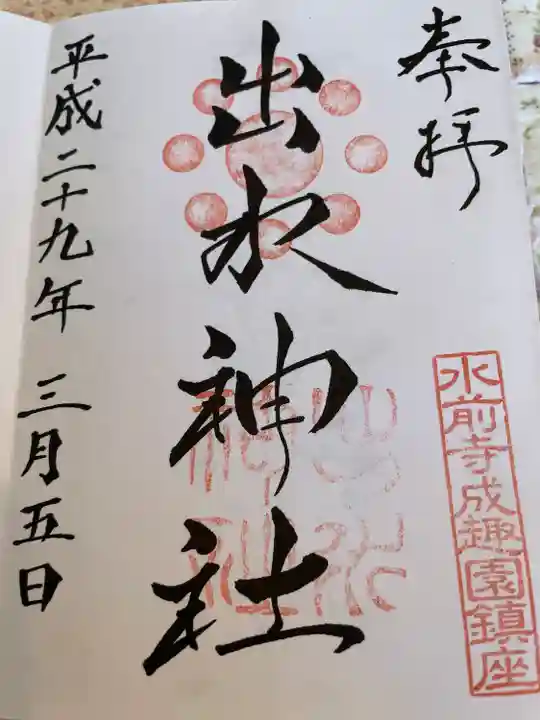 奉拝
水前寺成趣園鎮座
出水神社
出水神社
平成二十九年 三月五日